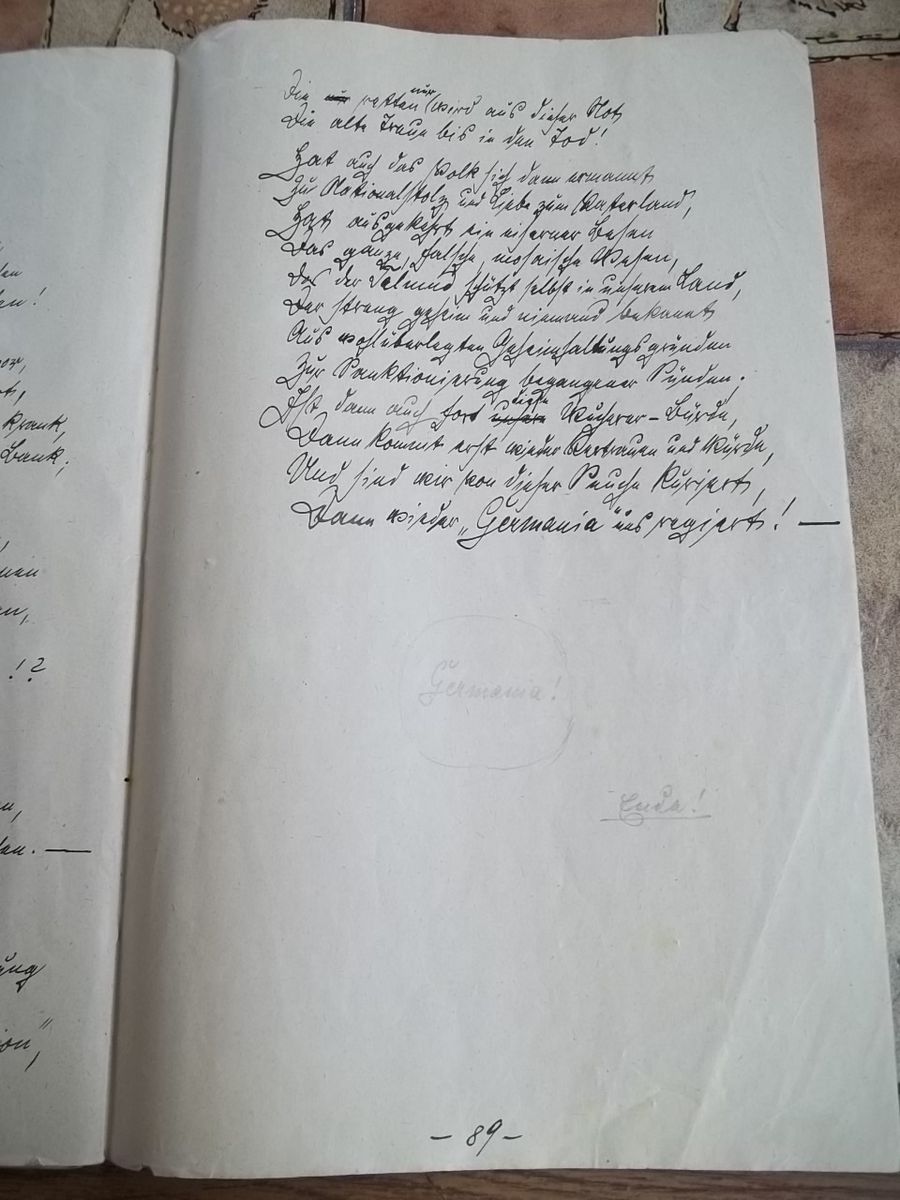 Die nur retten nur wird aus dieser Not,
Die alte Treue bis in den Tod!
Hat auch das Volk sich dann ermannt
Zu Nationalstolz und Liebe zum Vaterland,
Hat ausgekehrt ein eiserner Besen
Das ganze, falsche, mosaische Wesen,
Das der Talmud schützt selbst in unserem Land,
Der streng geheim und niemand bekannt
Aus wohlüberlegten Geheimhaltungsgründen
Zur Sanktionierung begangener Sünden.
Ist dann auch fort unsere diese Wucherer-Bürde,
Dann kommt erst wieder Vertrauen und Würde,
Und sind wir von dieser Seuche kuriert,
Dann wieder „Germania" uns regiert! —
Germania!
Ende!
- 89 -
len
en!
or,
t,
krank,
Bank;
nen
en,
!?
n,
en. —
ung
ion",